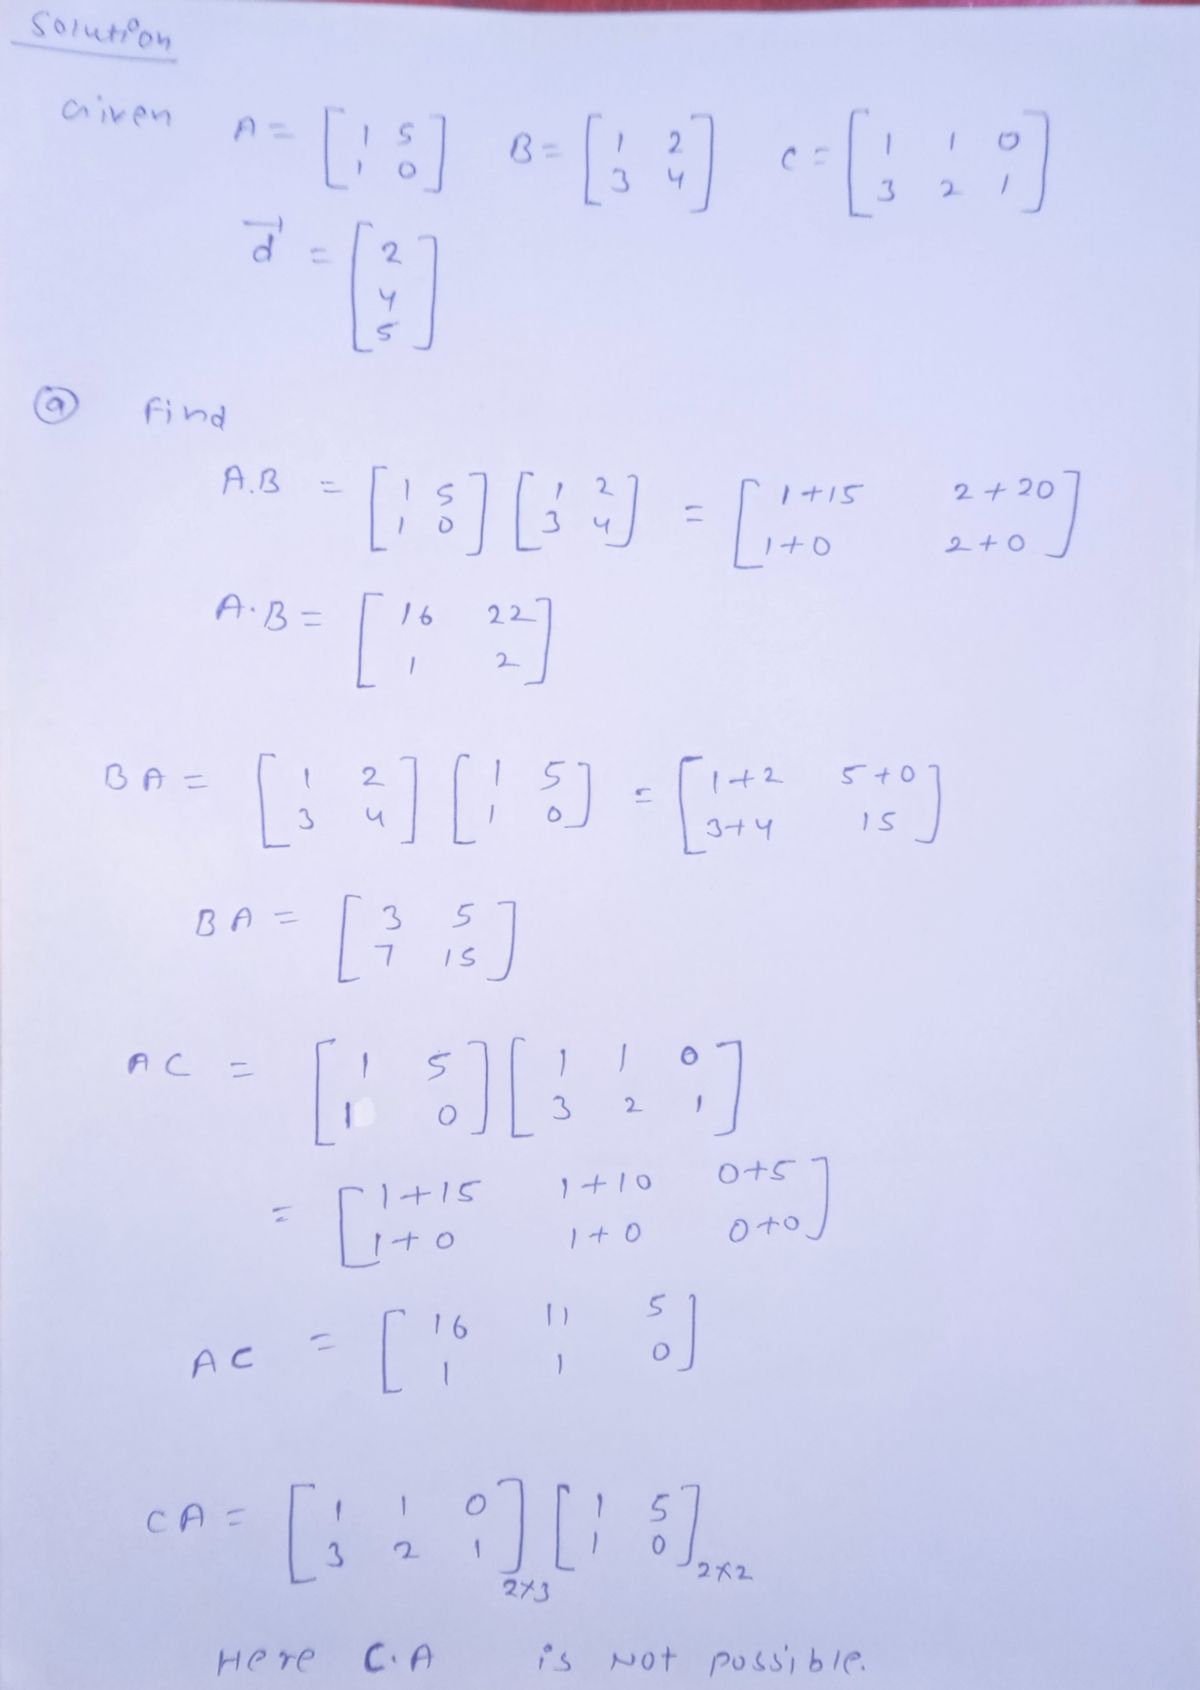 Solution
Given A = [1 5 B = [1 2 C = [1 1 0
1 0] 3 4] 3 2 1]
d⃗ = [2
4
5]
ⓐ Find
A.B = [1 5 [1 2 = [1+15 2+20
1 0] 3 4] 1+0 2+0]
A.B = [16 22
1 2]
BA = [1 2 [1 5 = [1+2 5+0
3 4] 1 0] 3+4 15]
BA = [3 5
7 15]
AC = [1 5 [1 1 0
1 0] 3 2 1]
= [1+15 1+10 0+5
1+0 1+0 0+0]
AC = [16 11 5
1 1 0]
CA = [1 1 0 [1 5
3 2 1]2×3 1 0]2×2
Here C.A is Not possible.